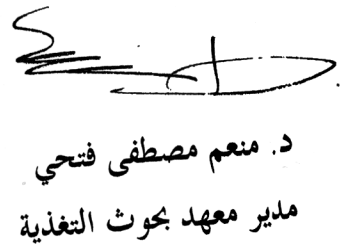 د. منعم مصطفى فتحي
مدير معهد بحوث التغذية